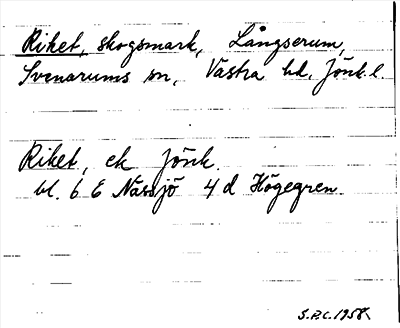 Riket, skogsmark, Långserum,
Svenarums sn, Västra hd, Jönk. l.
Riket, ek Jönk.
bl. 6 E Nässjö 4 d Högegren
S.P.C. 1958